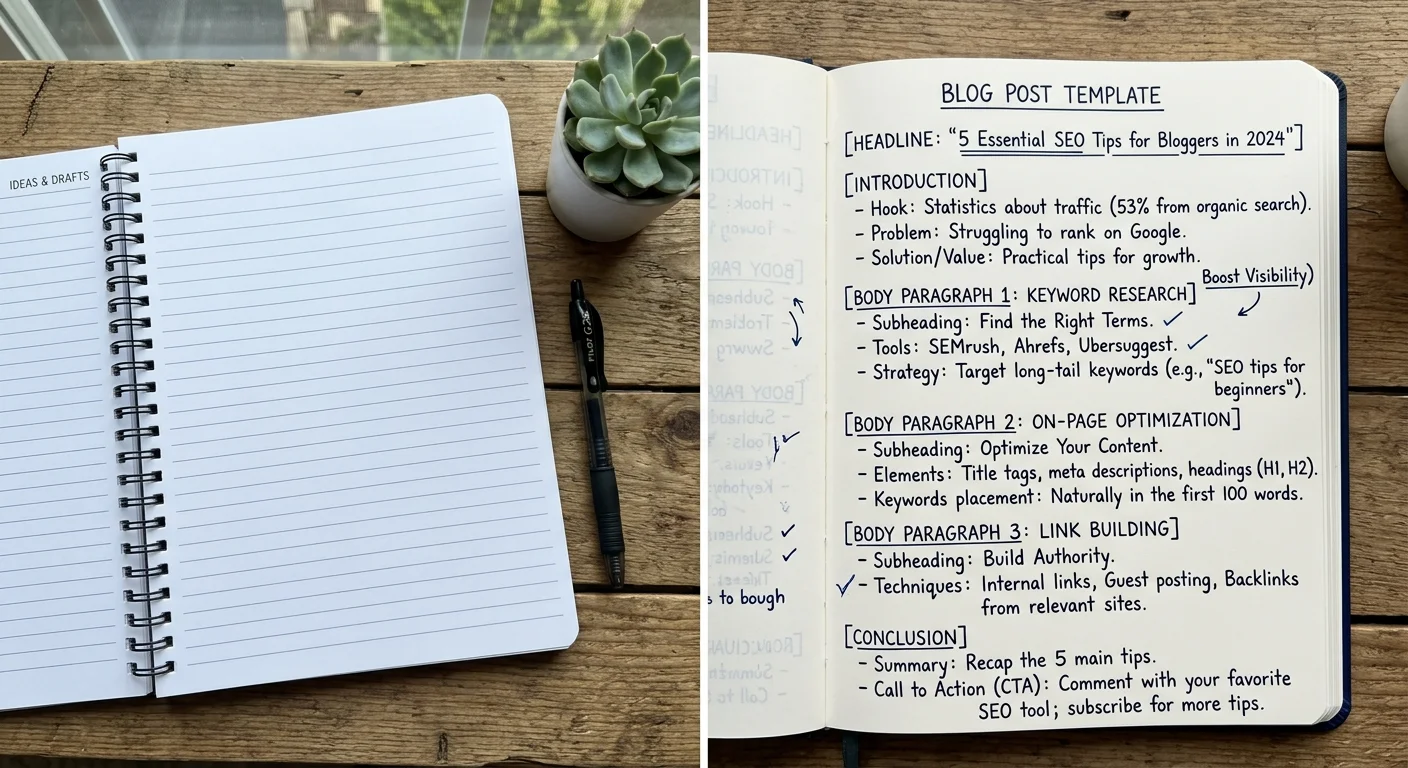 IDEAS & DRAFTS
PILOT G2
BLOG POST TEMPLATE
[HEADLINE: "5 Essential SEO Tips for Bloggers in 2024"]
[INTRODUCTION]
- Hook: Statistics about traffic (53% from organic search).
- Problem: Struggling to rank on Google.
- Solution/Value: Practical tips for growth.
Boost Visibility)
[BODY PARAGRAPH 1: KEYWORD RESEARCH]
- Subheading: Find the Right Terms. ✓
- Tools: SEMrush, Ahrefs, Ubersuggest. ✓
- Strategy: Target long-tail keywords (e.g., "SEO tips for
beginners").
[BODY PARAGRAPH 2: ON-PAGE OPTIMIZATION]
- Subheading: Optimize Your Content.
- Elements: Title tags, meta descriptions, headings (H1, H2).
- Keywords placement: Naturally in the first 100 words.
[BODY PARAGRAPH 3: LINK BUILDING]
- Subheading: Build Authority.
✓ - Techniques: Internal links, Guest posting, Backlinks
from relevant sites.
to bough
[CONCLUSION]
- Summary: Recap the 5 main tips.
- Call to Action (CTA): Comment with your favorite
SEO tool; subscribe for more tips.